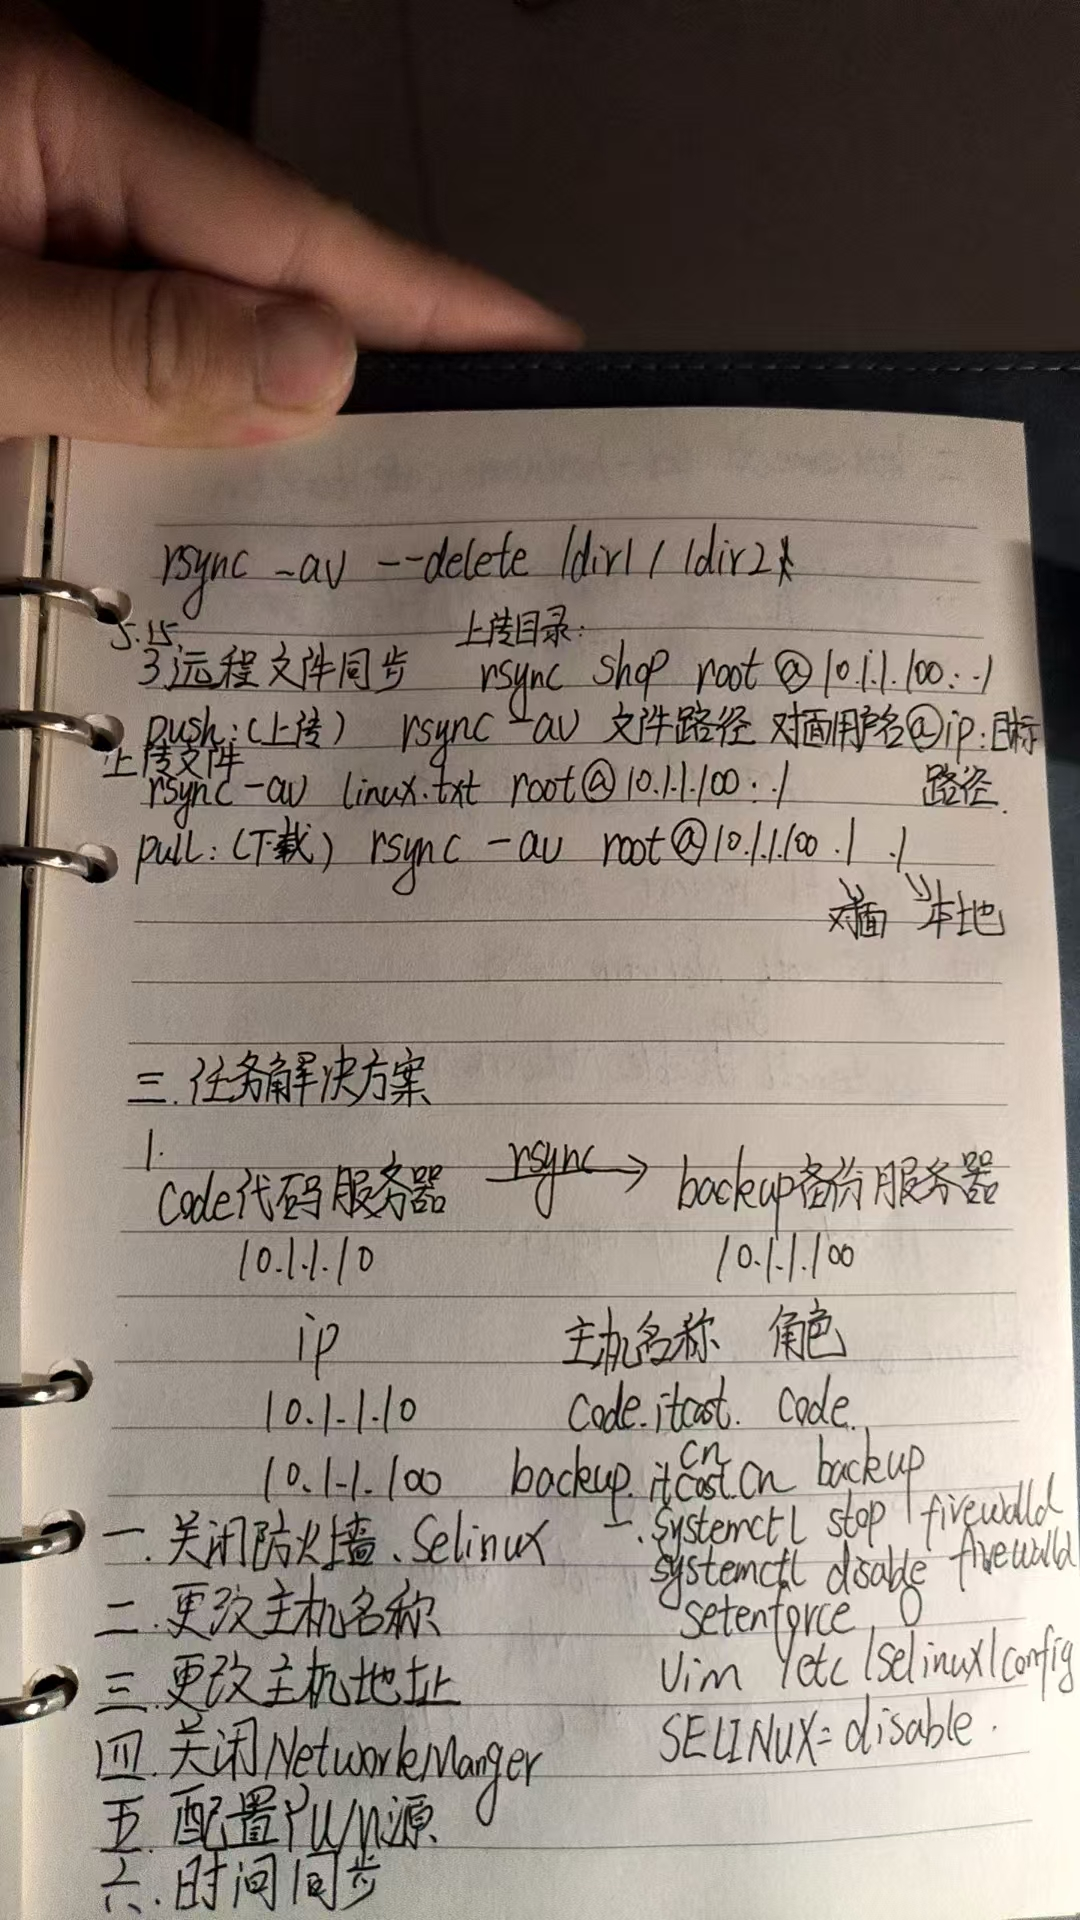 rsync -av --delete /dir1/ /dir2/
5.15.
上传目录:
3 远程文件同步 rsync shop root@10.1.1.100:/
push:(上传) rsync -av 文件路径 对面用户名@ip:目标
路径.
上传文件
rsync -av linux.txt root@10.1.1.100:/
pull:(下载) rsync -av root@10.1.1.100./ ./
对面 本地
三.任务解决方案
1.
code代码服务器 rsync → backup备份服务器
10.1.1.10 10.1.1.100
ip 主机名称 角色
10.1.1.10 code.itcast. code.
cn
10.1.1.100 backup.itcast.cn backup
一.关闭防火墙、Selinux 一.systemctl stop firewalld
systemctl disable firewalld
setenforce 0
二.更改主机名称
vim /etc/selinux/config
三.更改主机地址
SELINUX=disable.
四.关闭NetworkManger
五.配置YUM源
六.时间同步